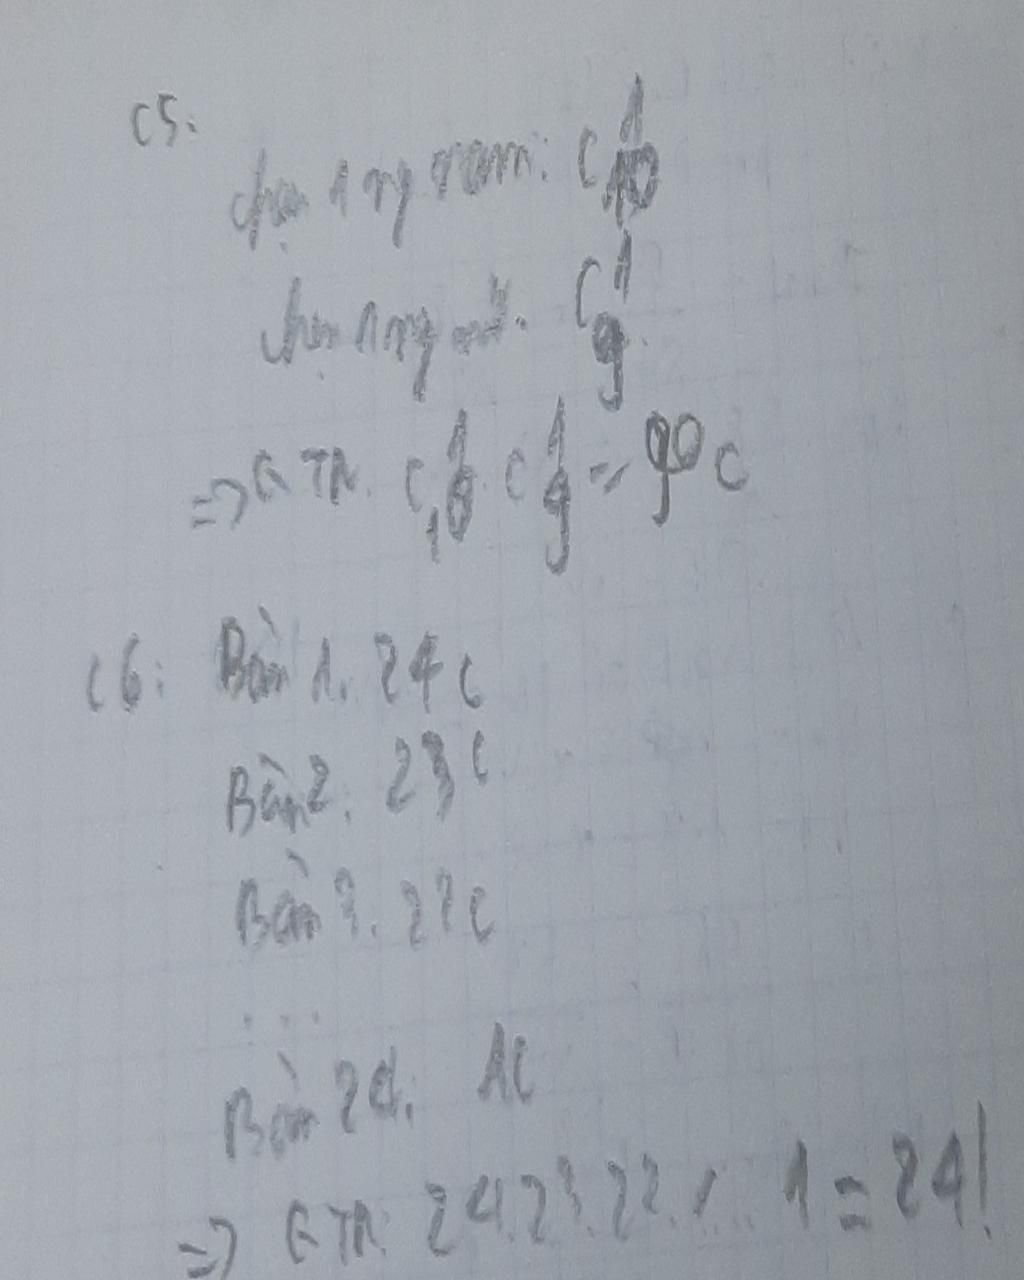 C5:
chọn 1 ng nam: C¹₁₀
chọn 1 ng nữ. C¹₉
=> QTN. C¹₁₀ . C¹₉ = 90 C
C6: Bàn 1. 24 C
Bàn 2. 23 C
Bàn 3. 22 C
...
Bàn 24. 1 C
=> QTN 24.23.22. ... 1 = 24!